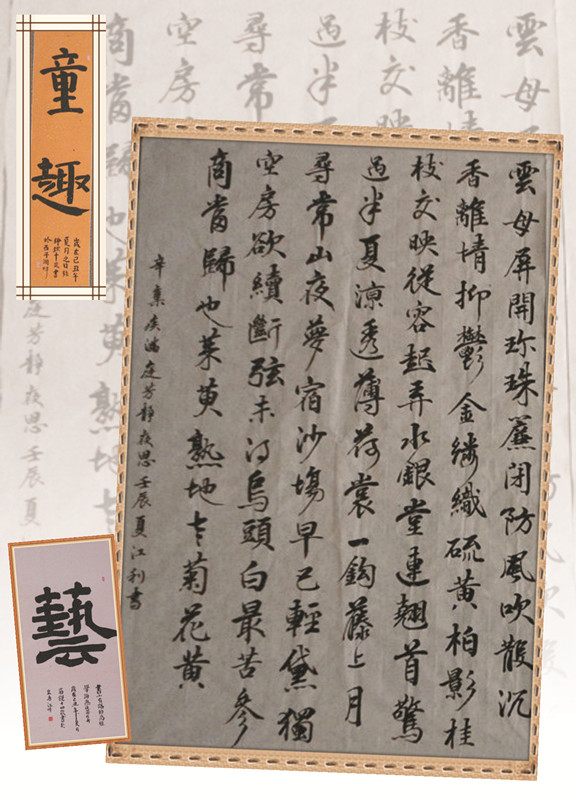 雲母屏開珍珠簾閉防風吹散沉
香離情抑鬱金縷織硫黄柏影桂
枝交映從容起弄水銀堂連翹首驚
過半夏涼透薄荷裳一鈎藤上月
尋常山夜夢宿沙場早已輕黛獨
空房欲續斷弦未得烏頭白最苦參
商當歸也茱萸熟地老菊花黄
辛棄疾滿庭芳靜夜思壬辰夏江利書
童趣
歲在己丑年
藝